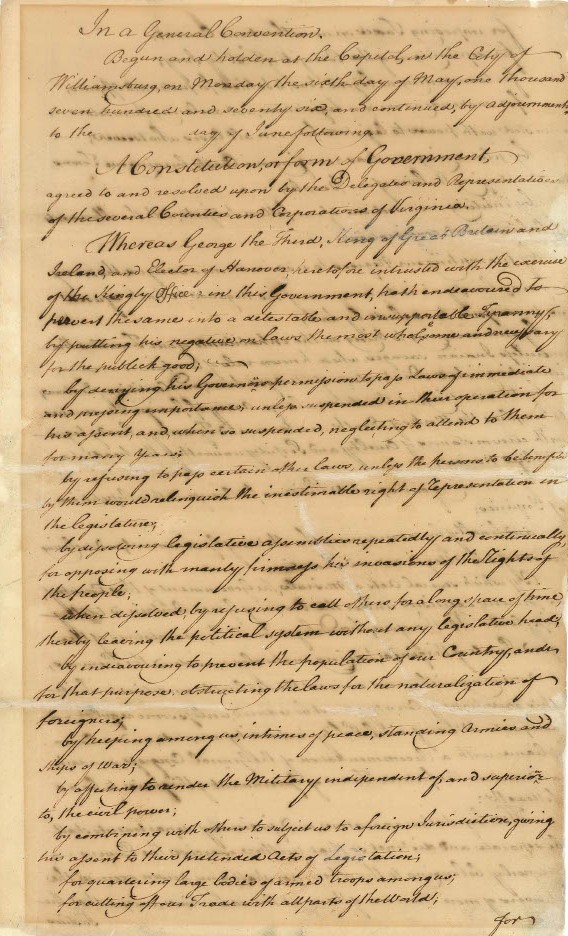 In a General Convention.
Begun and holden at the Capitol, in the City of
Williamsburg, on Monday the sixth day of May, one thousand
seven hundred and seventy six, and continued, by adjournments
to the day of June following.
A Constitution, or form of Government,
agreed to and resolved upon by the Delegates and Representatives
of the several Counties and Corporations of Virginia.
Whereas George the Third, King of Great Britain and
Ireland, and Elector of Hanover, heretofore intrusted with the exercise
of the Kingly Office in this Government, hath endeavoured to
pervert the same into a detestable and insupportable Tyranny;
by putting his negative on laws the most wholesome and necessary
for the publick good;
by denying his Governors permission to pass Laws of immediate
and pressing importance, unless suspended in their operation for
his assent, and, when so suspended, neglecting to attend to them
for many Years;
by refusing to pass certain other laws, unless the persons to be benefited
by them would relinquish the inestimable right of representation in
the legislature;
by dissolving legislative assemblies repeatedly and continually,
for opposing with manly firmness his invasions of the Rights of
the people;
when dissolved, by refusing to call others for a long space of time,
thereby leaving the political system without any legislative head;
by endeavouring to prevent the population of our Country, and,
for that purpose, obstructing the laws for the naturalization of
foreigners;
by keeping among us, in times of peace, standing Armies and
ships of War;
by affecting to render the Military independent of, and superior
to, the civil power;
by combining with others to subject us to a foreign Jurisdiction, giving
his assent to their pretended Acts of Legislation;
for quartering large bodies of armed troops among us;
for cutting off our Trade with all parts of the World;
for